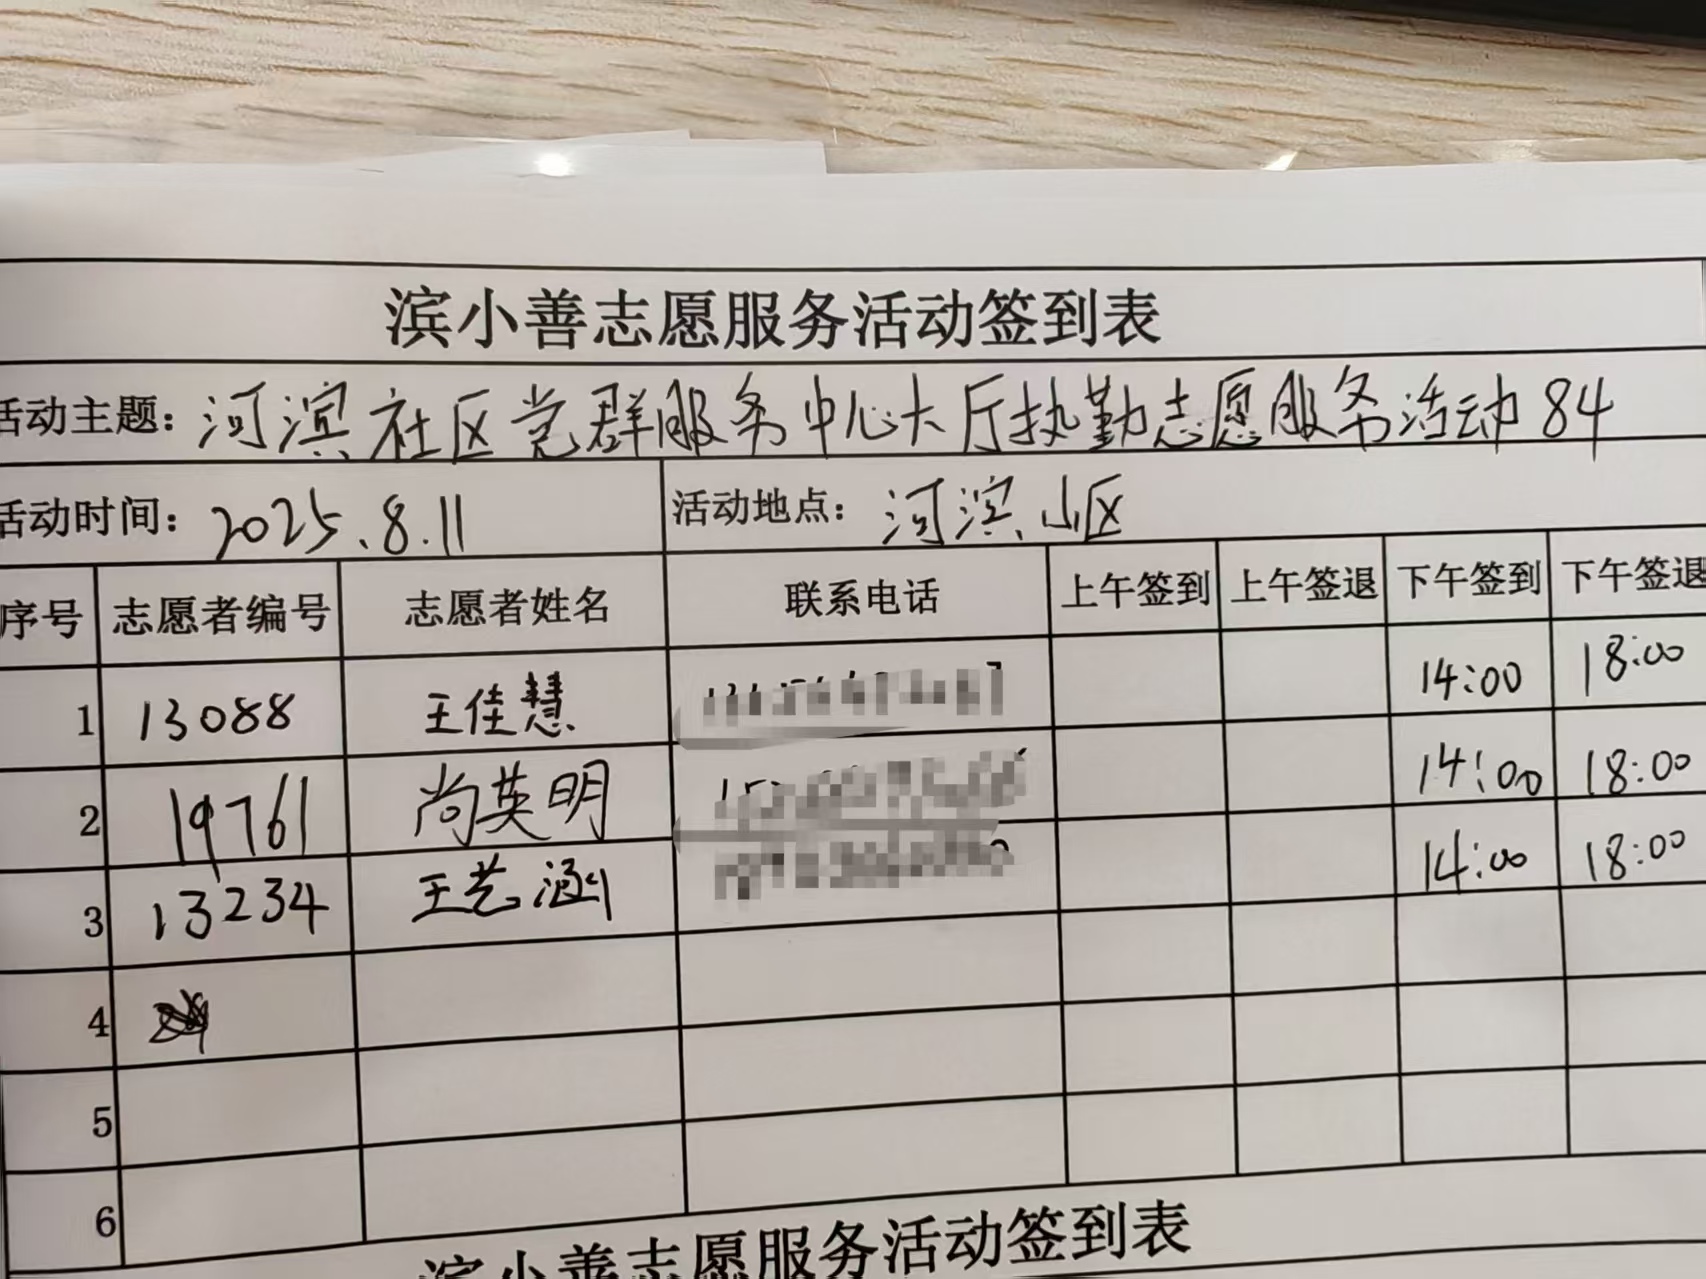 滨小善志愿服务活动签到表
活动主题：河滨社区党群服务中心大厅执勤志愿服务活动84
活动时间：2025.8.11 活动地点：河滨小区
序号 志愿者编号 志愿者姓名 联系电话 上午签到 上午签退 下午签到 下午签退
1 13088 王佳慧 14:00 18:00
2 19761 尚英明 14:00 18:00
3 13234 王艺涵 14:00 18:00
4
5
6
滨小善志愿服务活动签到表